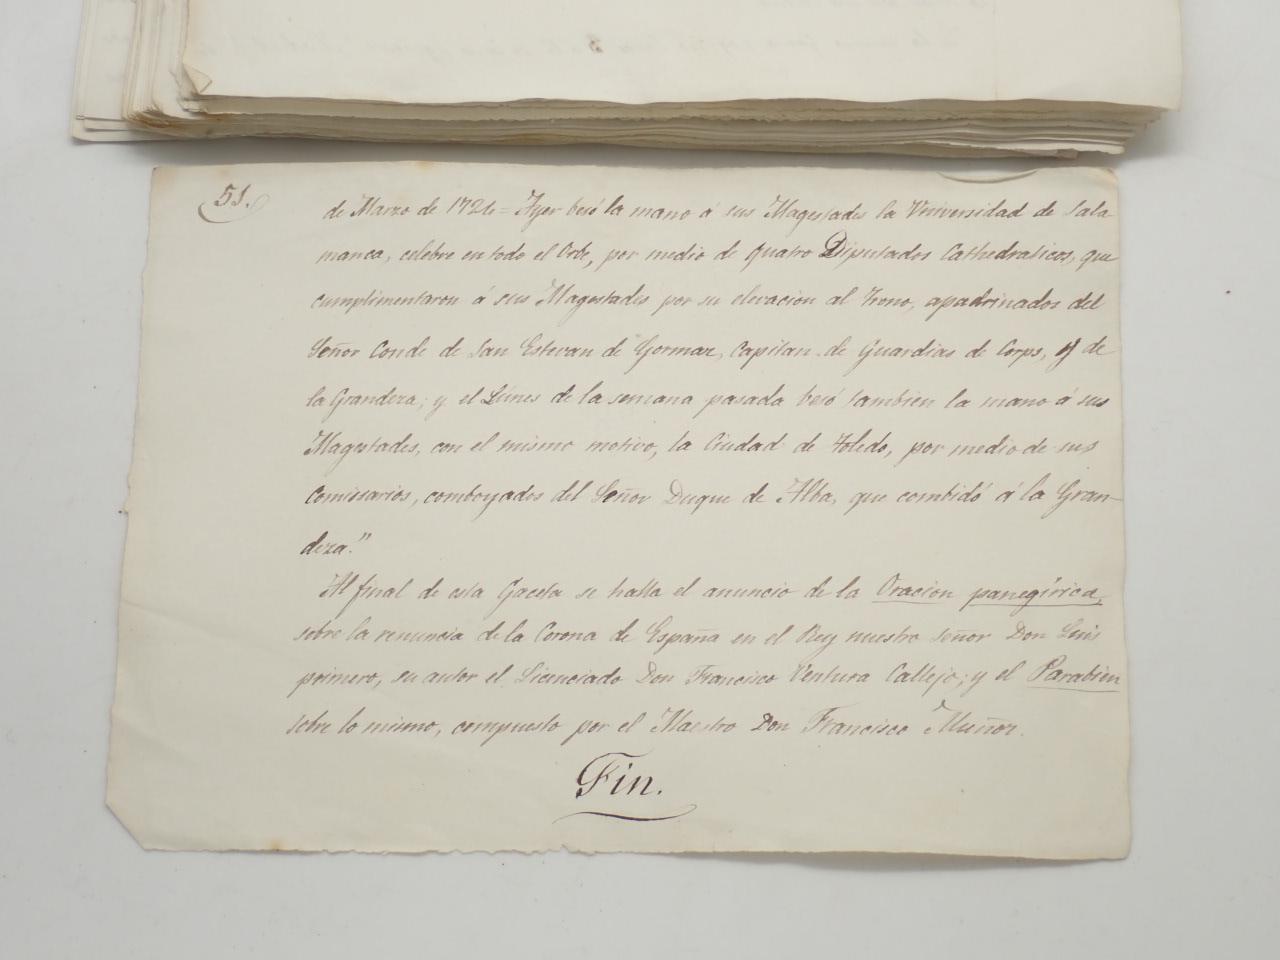 51.
de Marzo de 1724 = Ayer besó la mano á sus Magestades la Universidad de Sala
manca, celebre en todo el Orbe, por medio de quatro Diputados Cathedraticos, que
cumplimentaron á sus Magestades por su elevacion al Trono, apadrinados del
Señor Conde de San Estevan de Gormaz, Capitan de Guardias de Corps, y de
la Grandeza; y el Lúnes de la semana pasada besó tambien la mano á sus
Magestades, con el mismo motivo, la Ciudad de Toledo, por medio de sus
Comissarios, comboyados del Señor Duque de Alba, que combidó á la Gran-
deza."
Al final de esta Gaceta se halla el anuncio de la Oracion panegírica,
sobre la renuncia de la Corona de España en el Rey nuestro señor Don Luis
primero, su autor el Licenciado Don Francisco Ventura Callejo; y el Parabien
sobre lo mismo, compuesto por el Maestro Don Francisco Muñoz.
Fin.